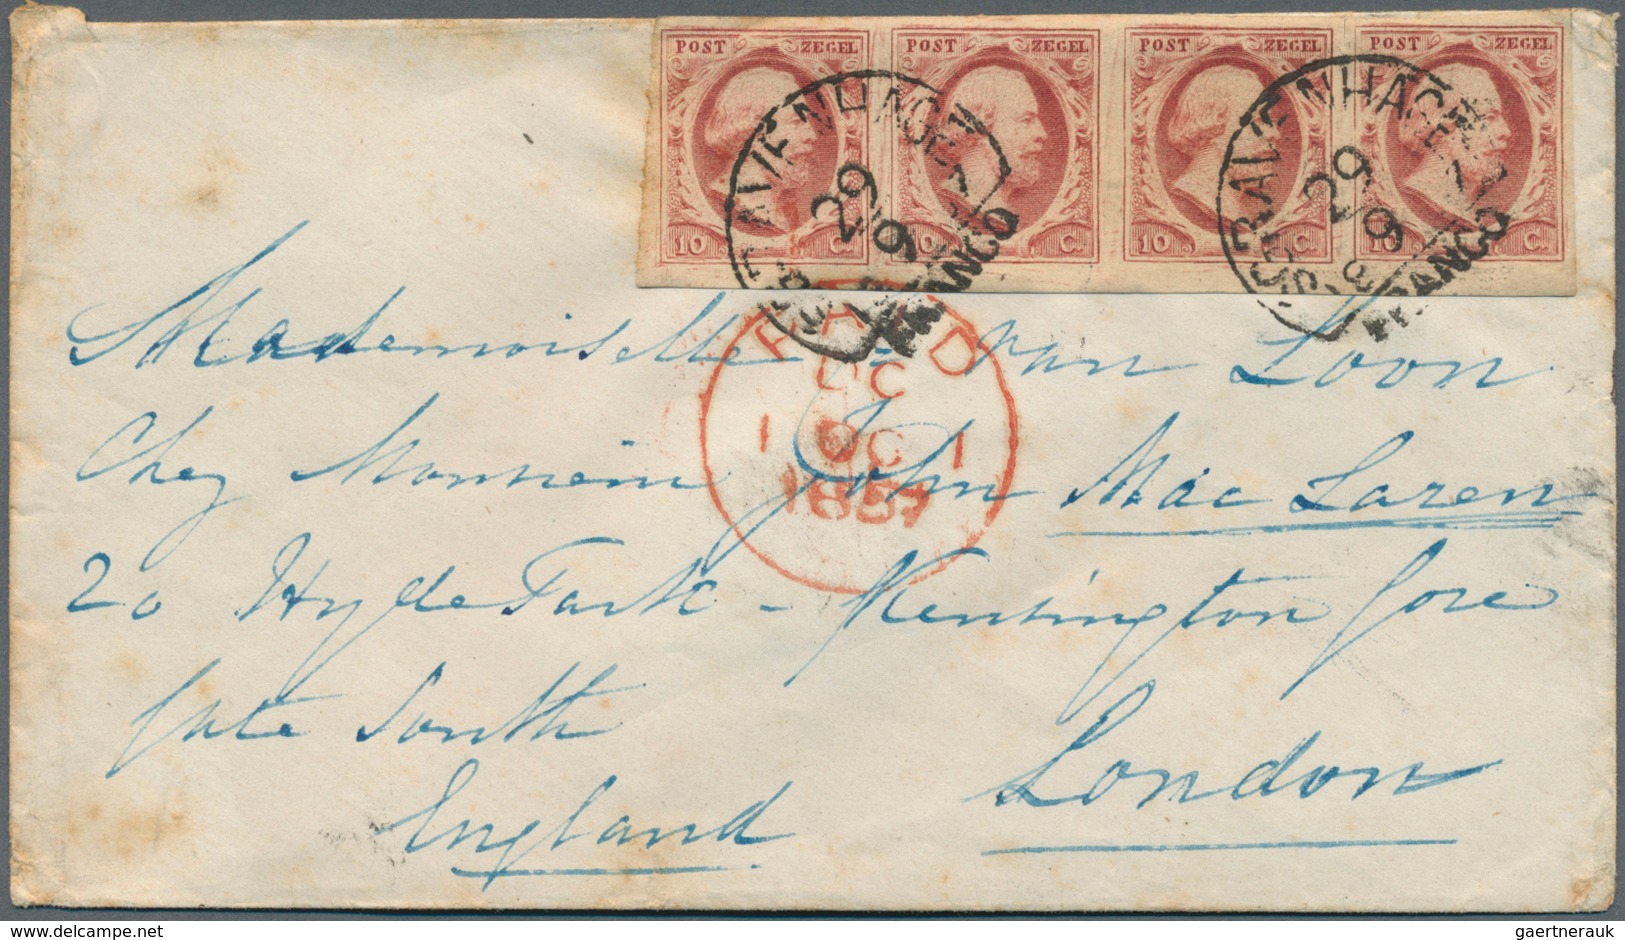 POST ZEGEL POST ZEGEL POST ZEGEL POST ZEGEL
10 C. 10 C. 10 C. 10 C.
'S GRAVENHAGE
29
9
FRANCO
'S GRAVENHAGE
29
9
FRANCO
PAID
OC
1 OC 1
1857
Mademoiselle van Loon
Chez Monsieur John Mac Laren
20 Hyde Park - Kensington Gore
Gate South
England London
delcampe.net
gaertnerauk